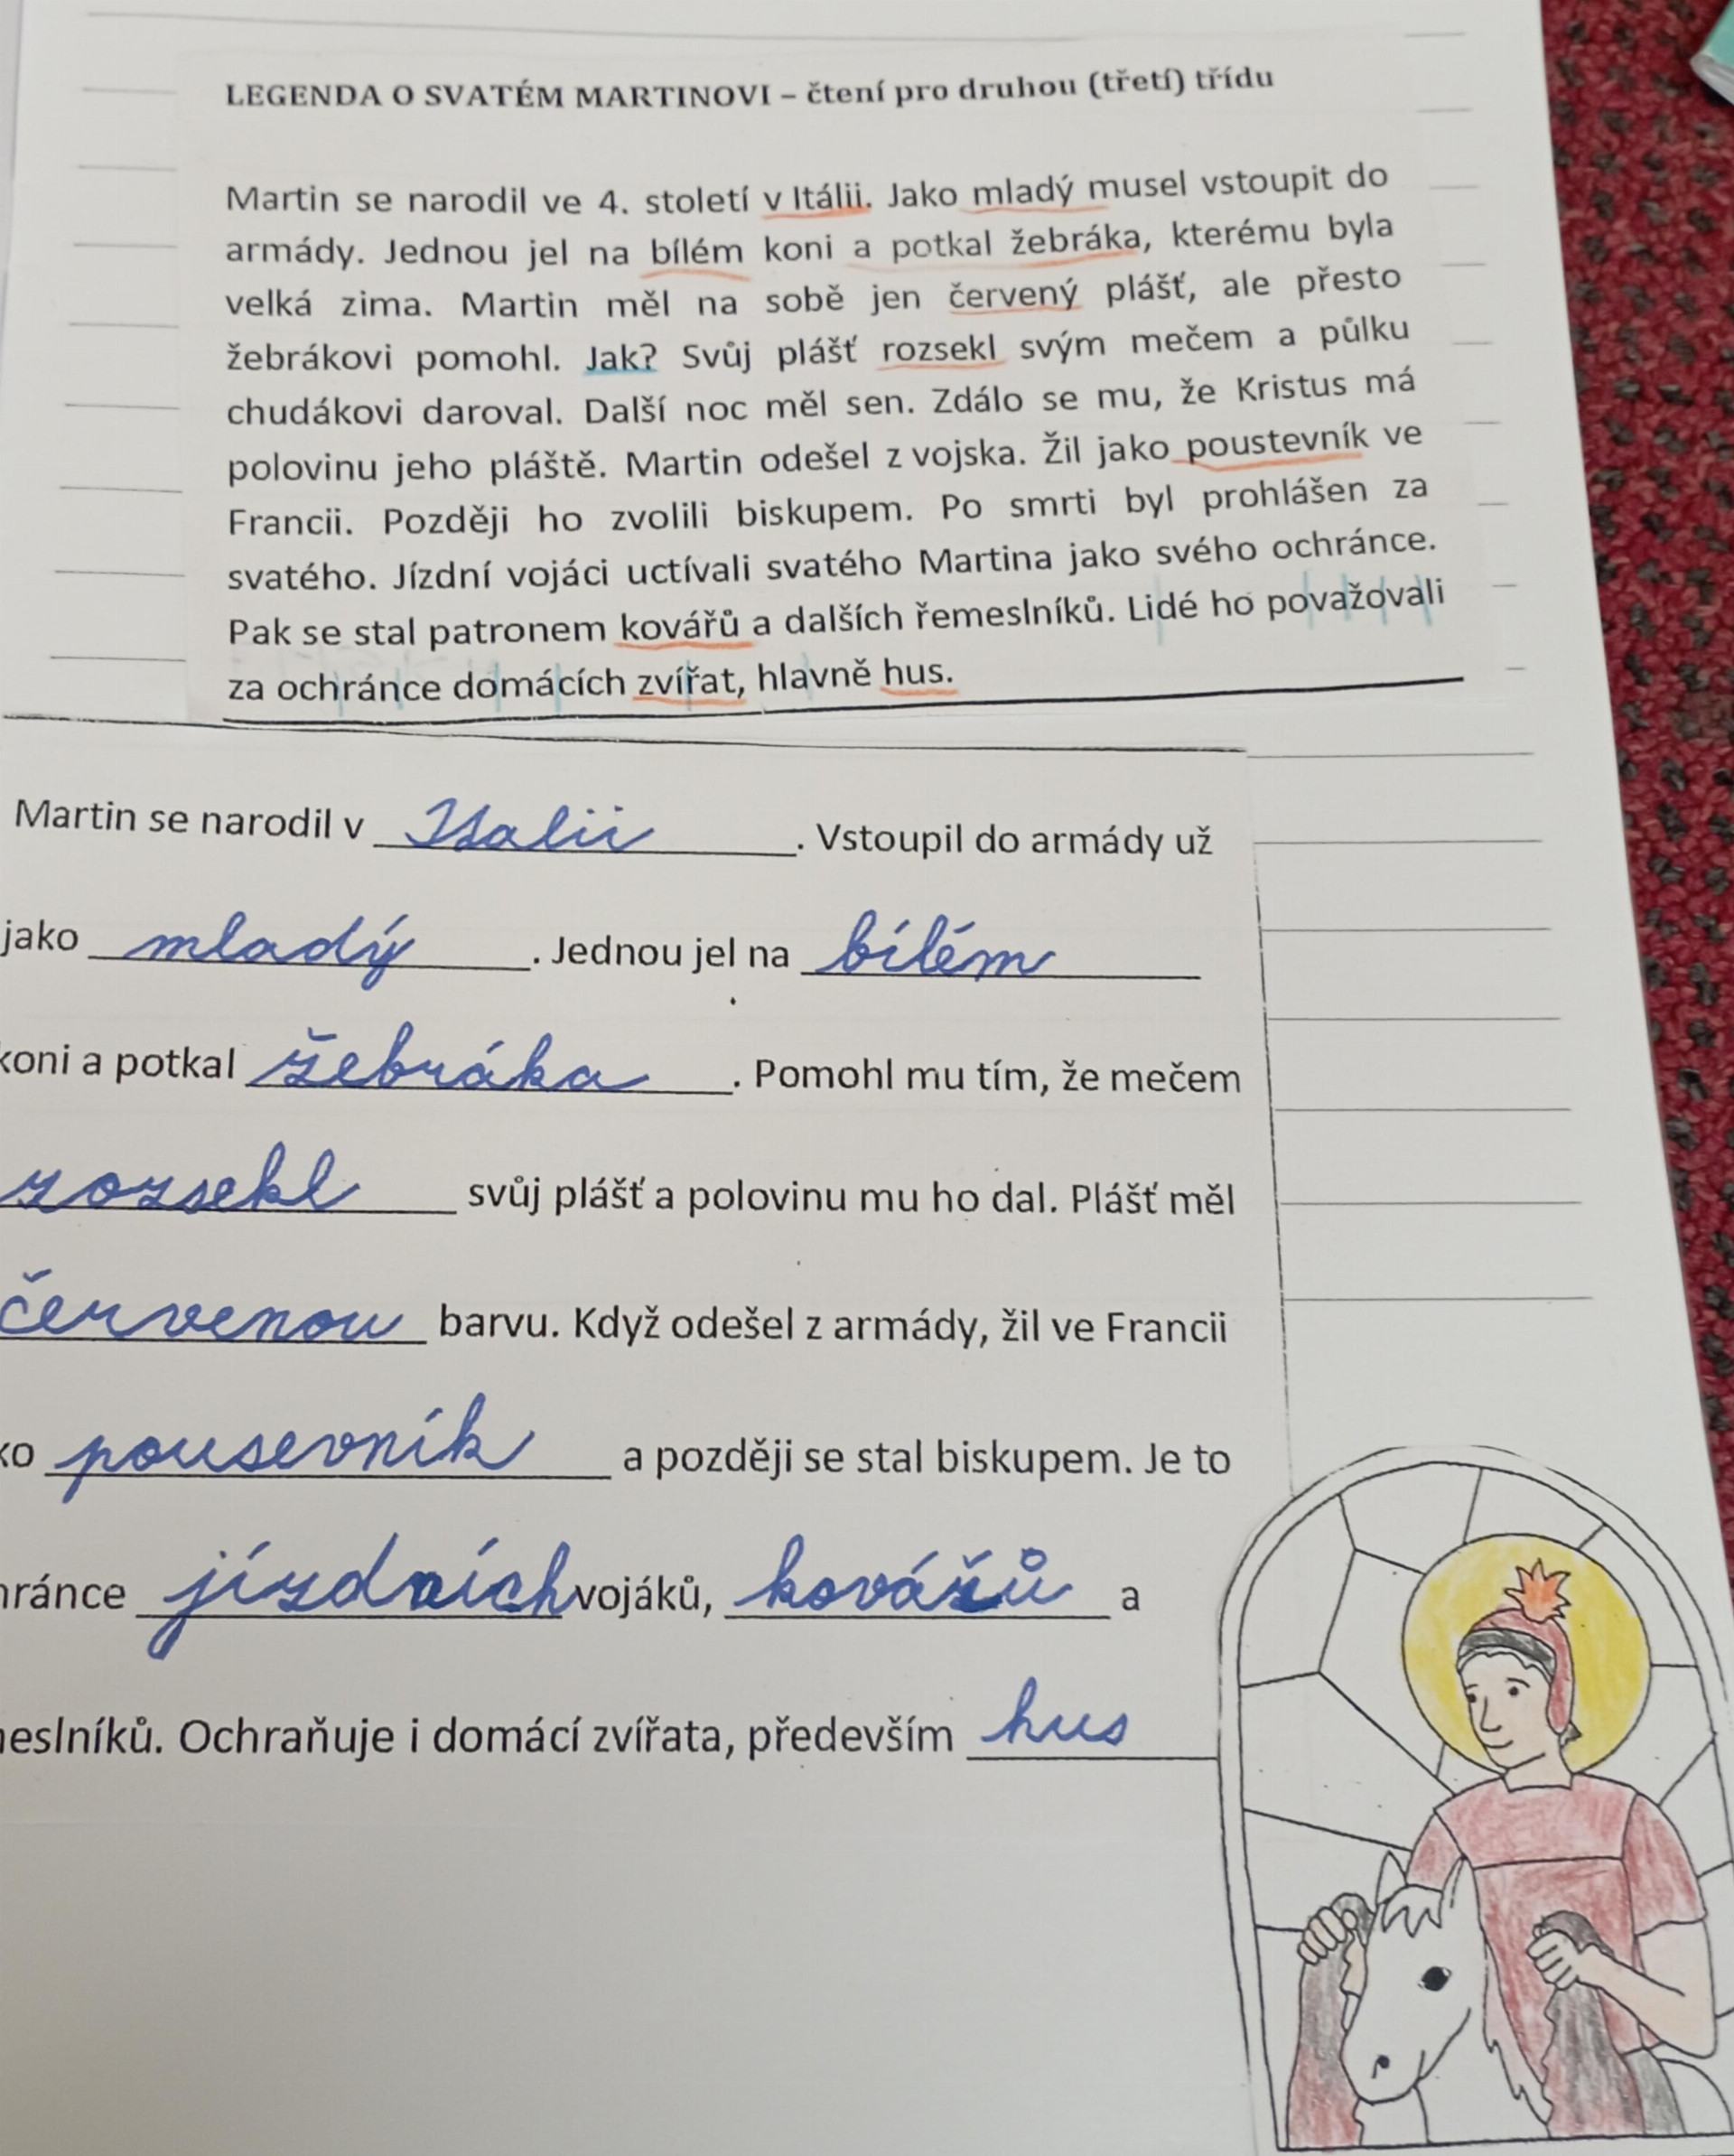 LEGENDA O SVATÉM MARTINOVI – čtení pro druhou (třetí) třídu
Martin se narodil ve 4. století v Itálii. Jako mladý musel vstoupit do
armády. Jednou jel na bílém koni a potkal žebráka, kterému byla
velká zima. Martin měl na sobě jen červený plášť, ale přesto
žebrákovi pomohl. Jak? Svůj plášť rozsekl svým mečem a půlku
chudákovi daroval. Další noc měl sen. Zdálo se mu, že Kristus má
polovinu jeho pláště. Martin odešel z vojska. Žil jako poustevník ve
Francii. Později ho zvolili biskupem. Po smrti byl prohlášen za
svatého. Jízdní vojáci uctívali svatého Martina jako svého ochránce.
Pak se stal patronem kovářů a dalších řemeslníků. Lidé ho považovali
za ochránce domácích zvířat, hlavně hus.
Martin se narodil v Italii. Vstoupil do armády už
jako mladý. Jednou jel na bílém
koni a potkal žebráka. Pomohl mu tím, že mečem
rozsekl svůj plášť a polovinu mu ho dal. Plášť měl
červenou barvu. Když odešel z armády, žil ve Francii
ko pousevník a později se stal biskupem. Je to
hránce jízdních vojáků, kovářů a
neslníků. Ochraňuje i domácí zvířata, především hus